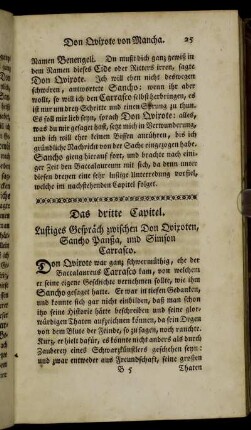 Don Qvixote von Mancha. 25
Namen Benengeli. Du mußt dich ganz gewiß in
dem Namen dieses Cide oder Ritters irren, sagte
Don Qvixote. Ich will eben nicht deswegen
schwören, antwortete Sancho: wenn ihr aber
wollt, so will ich den Carrasco selbst herbringen, es
ist nur um drey Schritte und einen Sprung zu thun.
Es soll mir lieb seyn, sprach Don Qvixote: alles,
was du mir gesagt hast, setzt mich in Verwunderung,
und ich will eher keinen Bissen anrühren, bis ich
gründliche Nachricht von der Sache eingezogen habe.
Sancho gieng hierauf fort, und brachte nach eini-
ger Zeit den Baccalaureum mit sich, da denn unter
diesen dreyen eine sehr lustige Unterredung vorfiel,
welche im nachstehenden Capitel folget.
Das dritte Capitel.
Lustiges Gespräch zwischen Don Qvixoten,
Sancho Panßa, und Simson
Carrasco.
Don Qvixote war ganz schwermüthig, ehe der
Baccalaureus Carrasco kam, von welchem
er seine eigene Geschichte vernehmen sollte, wie ihm
Sancho gesaget hatte. Er war in tiefen Gedanken,
und konnte sich gar nicht einbilden, daß man schon
itzo seine Historie hätte beschreiben und seine glor-
würdigen Thaten aufzeichnen können, da sein Degen
von dem Blute der Feinde, so zu sagen, noch rauchte.
Kurz, er hielt dafür, es könnte nicht anders als durch
Zauberey eines Schwarzkünstlers geschehen seyn:
und zwar entweder aus Freundschaft, seine großen
B 5 Thaten